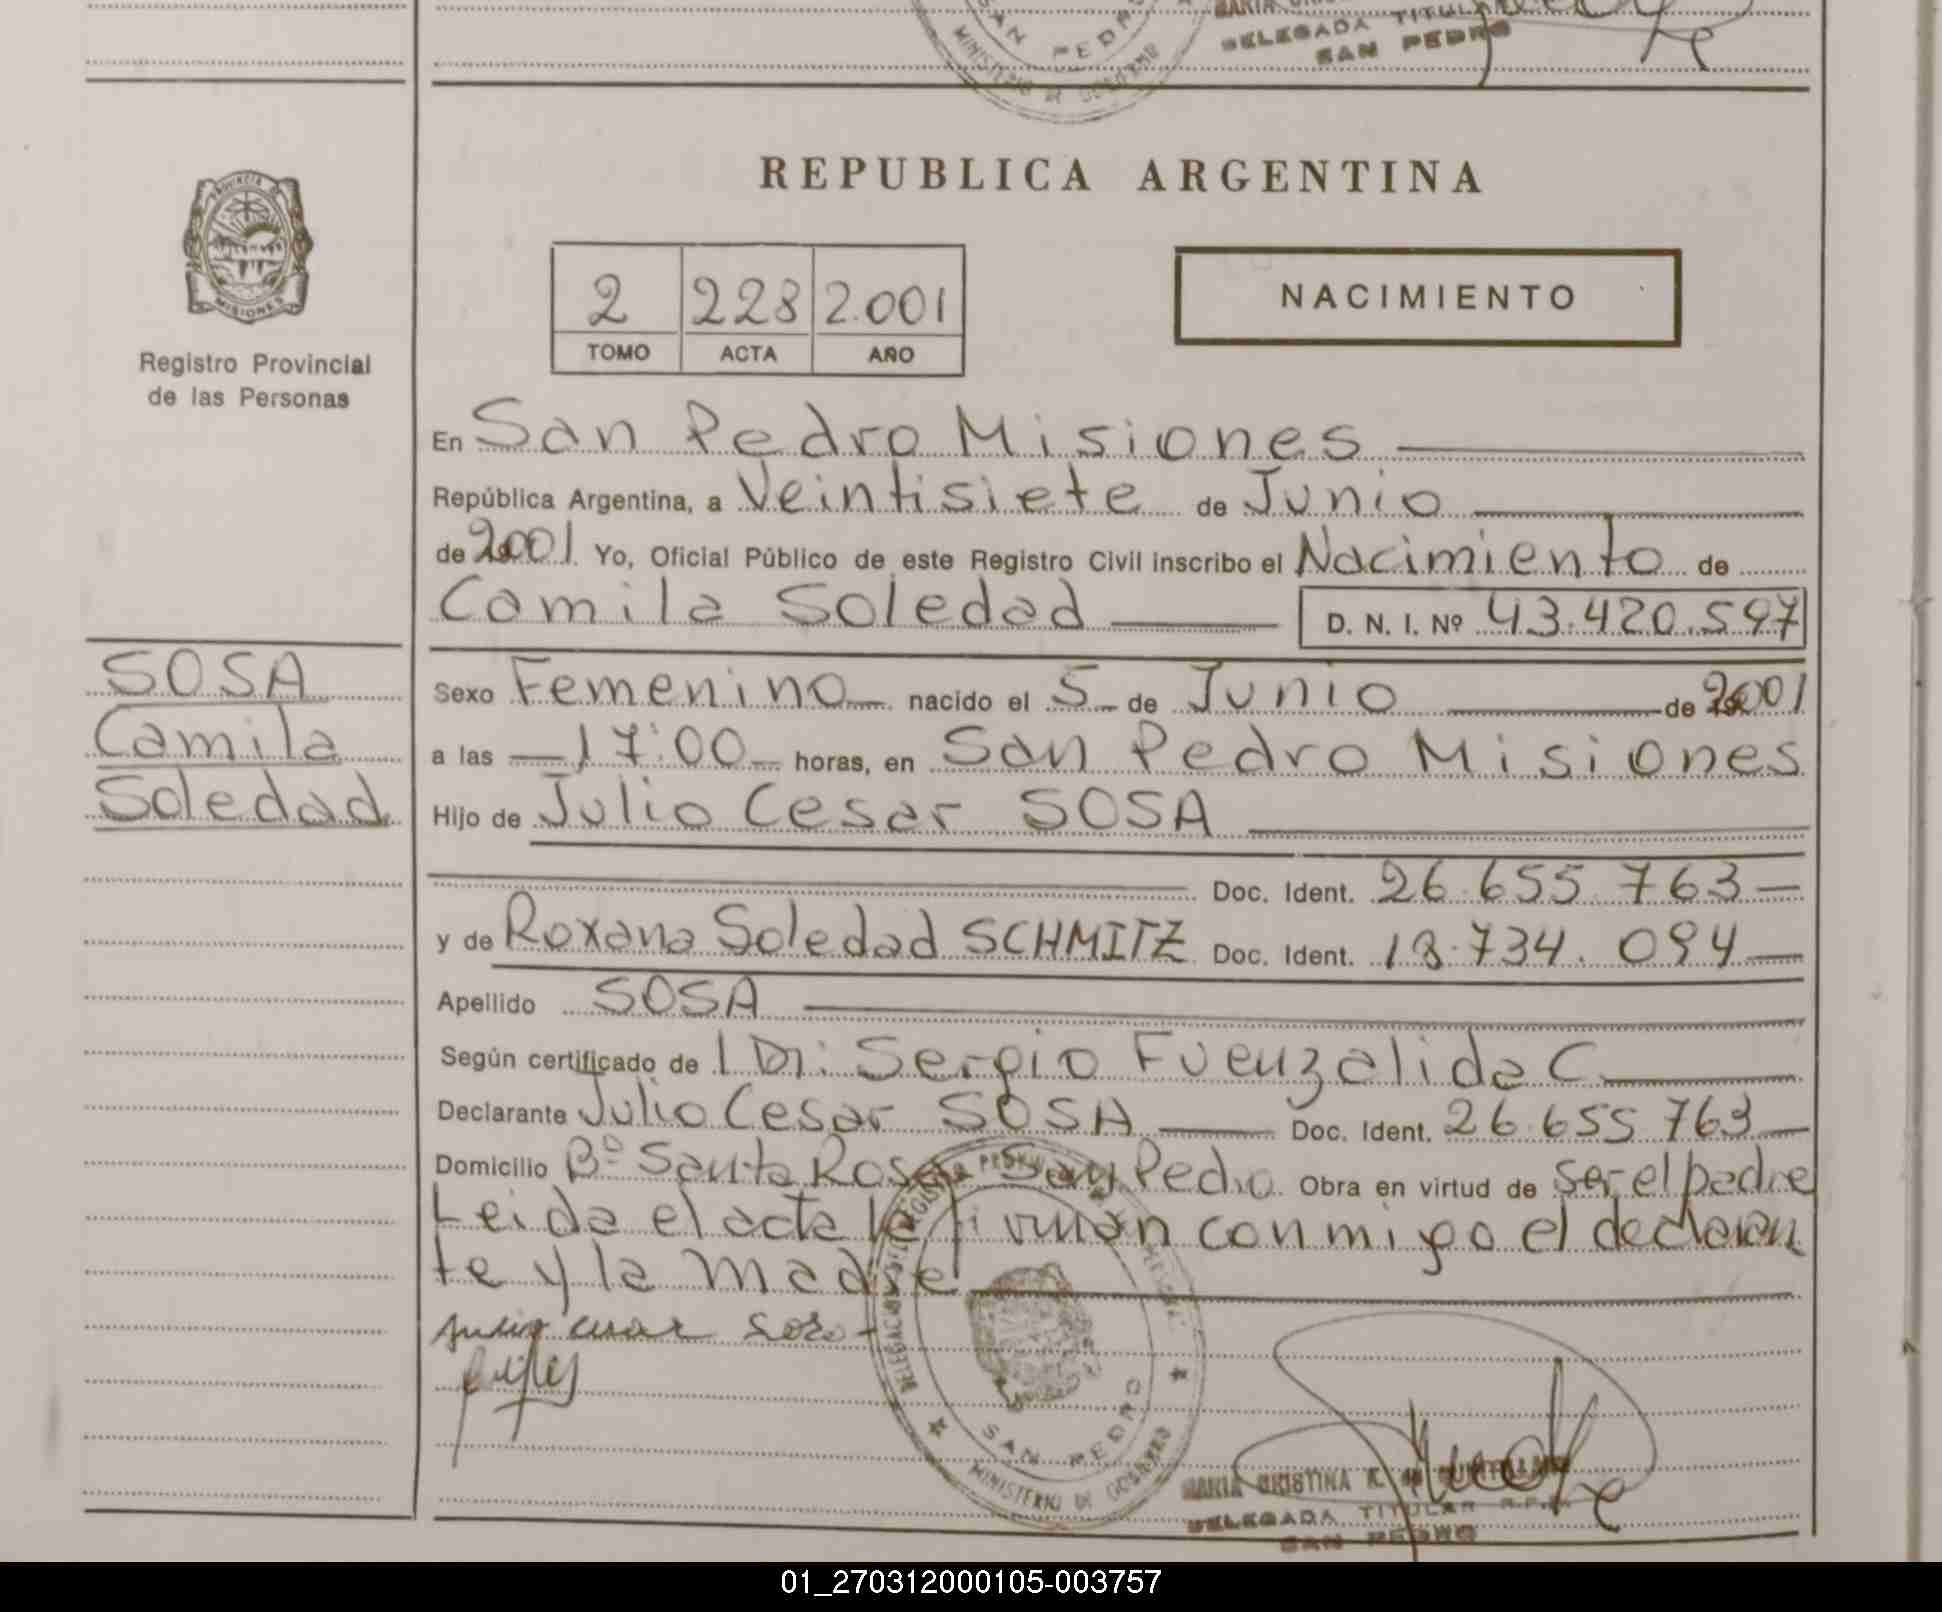 SAN PEDRO
MINISTERIO DE GOBIERNO
DELEGADA TITULAR
SAN PEDRO
PROVINCIA DE
MISIONES
Registro Provincial
de las Personas
REPUBLICA ARGENTINA
2 228 2.001
TOMO ACTA AÑO
NACIMIENTO
En San Pedro Misiones
República Argentina, a Veintisiete de Junio
de 2001 Yo, Oficial Público de este Registro Civil inscribo el Nacimiento de
Camila Soledad D. N. I. Nº 43.420.597
SOSA
Camila
Soledad
Sexo Femenino nacido el 5 de Junio de 2001
a las 17:00 horas, en San Pedro Misiones
Hijo de Julio Cesar SOSA
Doc. Ident. 26.655.763
y de Roxana Soledad SCHMITZ Doc. Ident. 18.734.094
Apellido SOSA
Según certificado de l Dr: Sergio Fuenzalida C
Declarante Julio Cesar SOSA Doc. Ident. 26.655.763
Domicilio Bº Santa Rosa San Pedro Obra en virtud de ser el padre
Leida el acta la firman conmigo el declaran
te y la madre
Julio cesar sosa
SAN PEDRO
MINISTERIO DE GOBIERNO
MARIA CRISTINA
DELEGADA TITULAR R.P.P.
SAN PEDRO
01_270312000105-003757